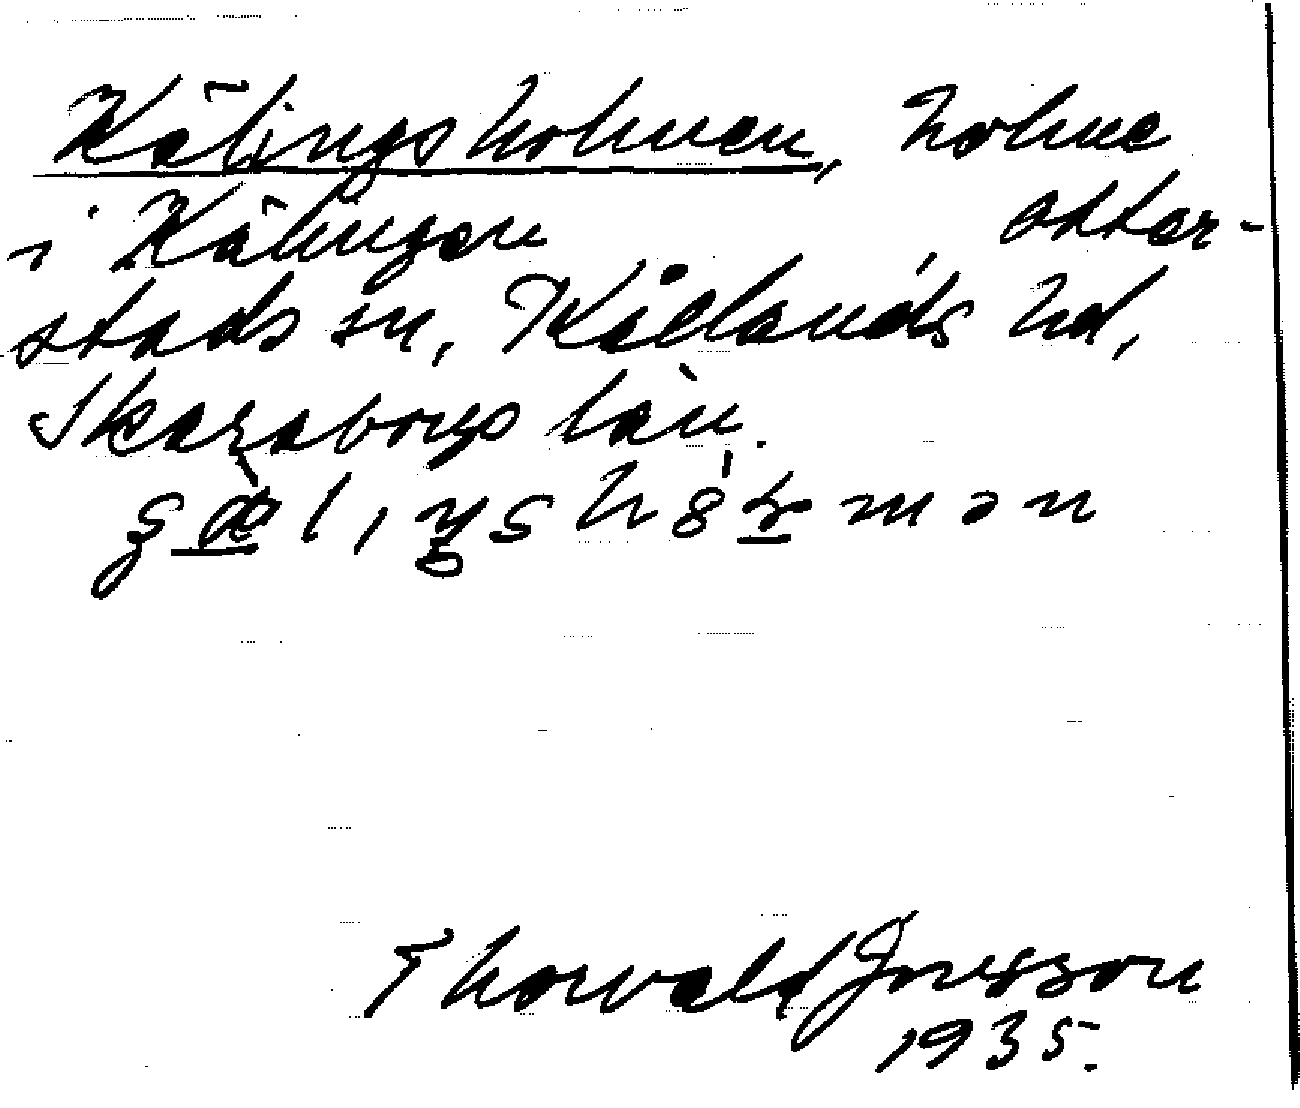 Kälingsholmen, holme
i Kälingen, otter-
stads sn, Kållands hd,
Skaraborgs län.
Thorvald Jonsson
1935.